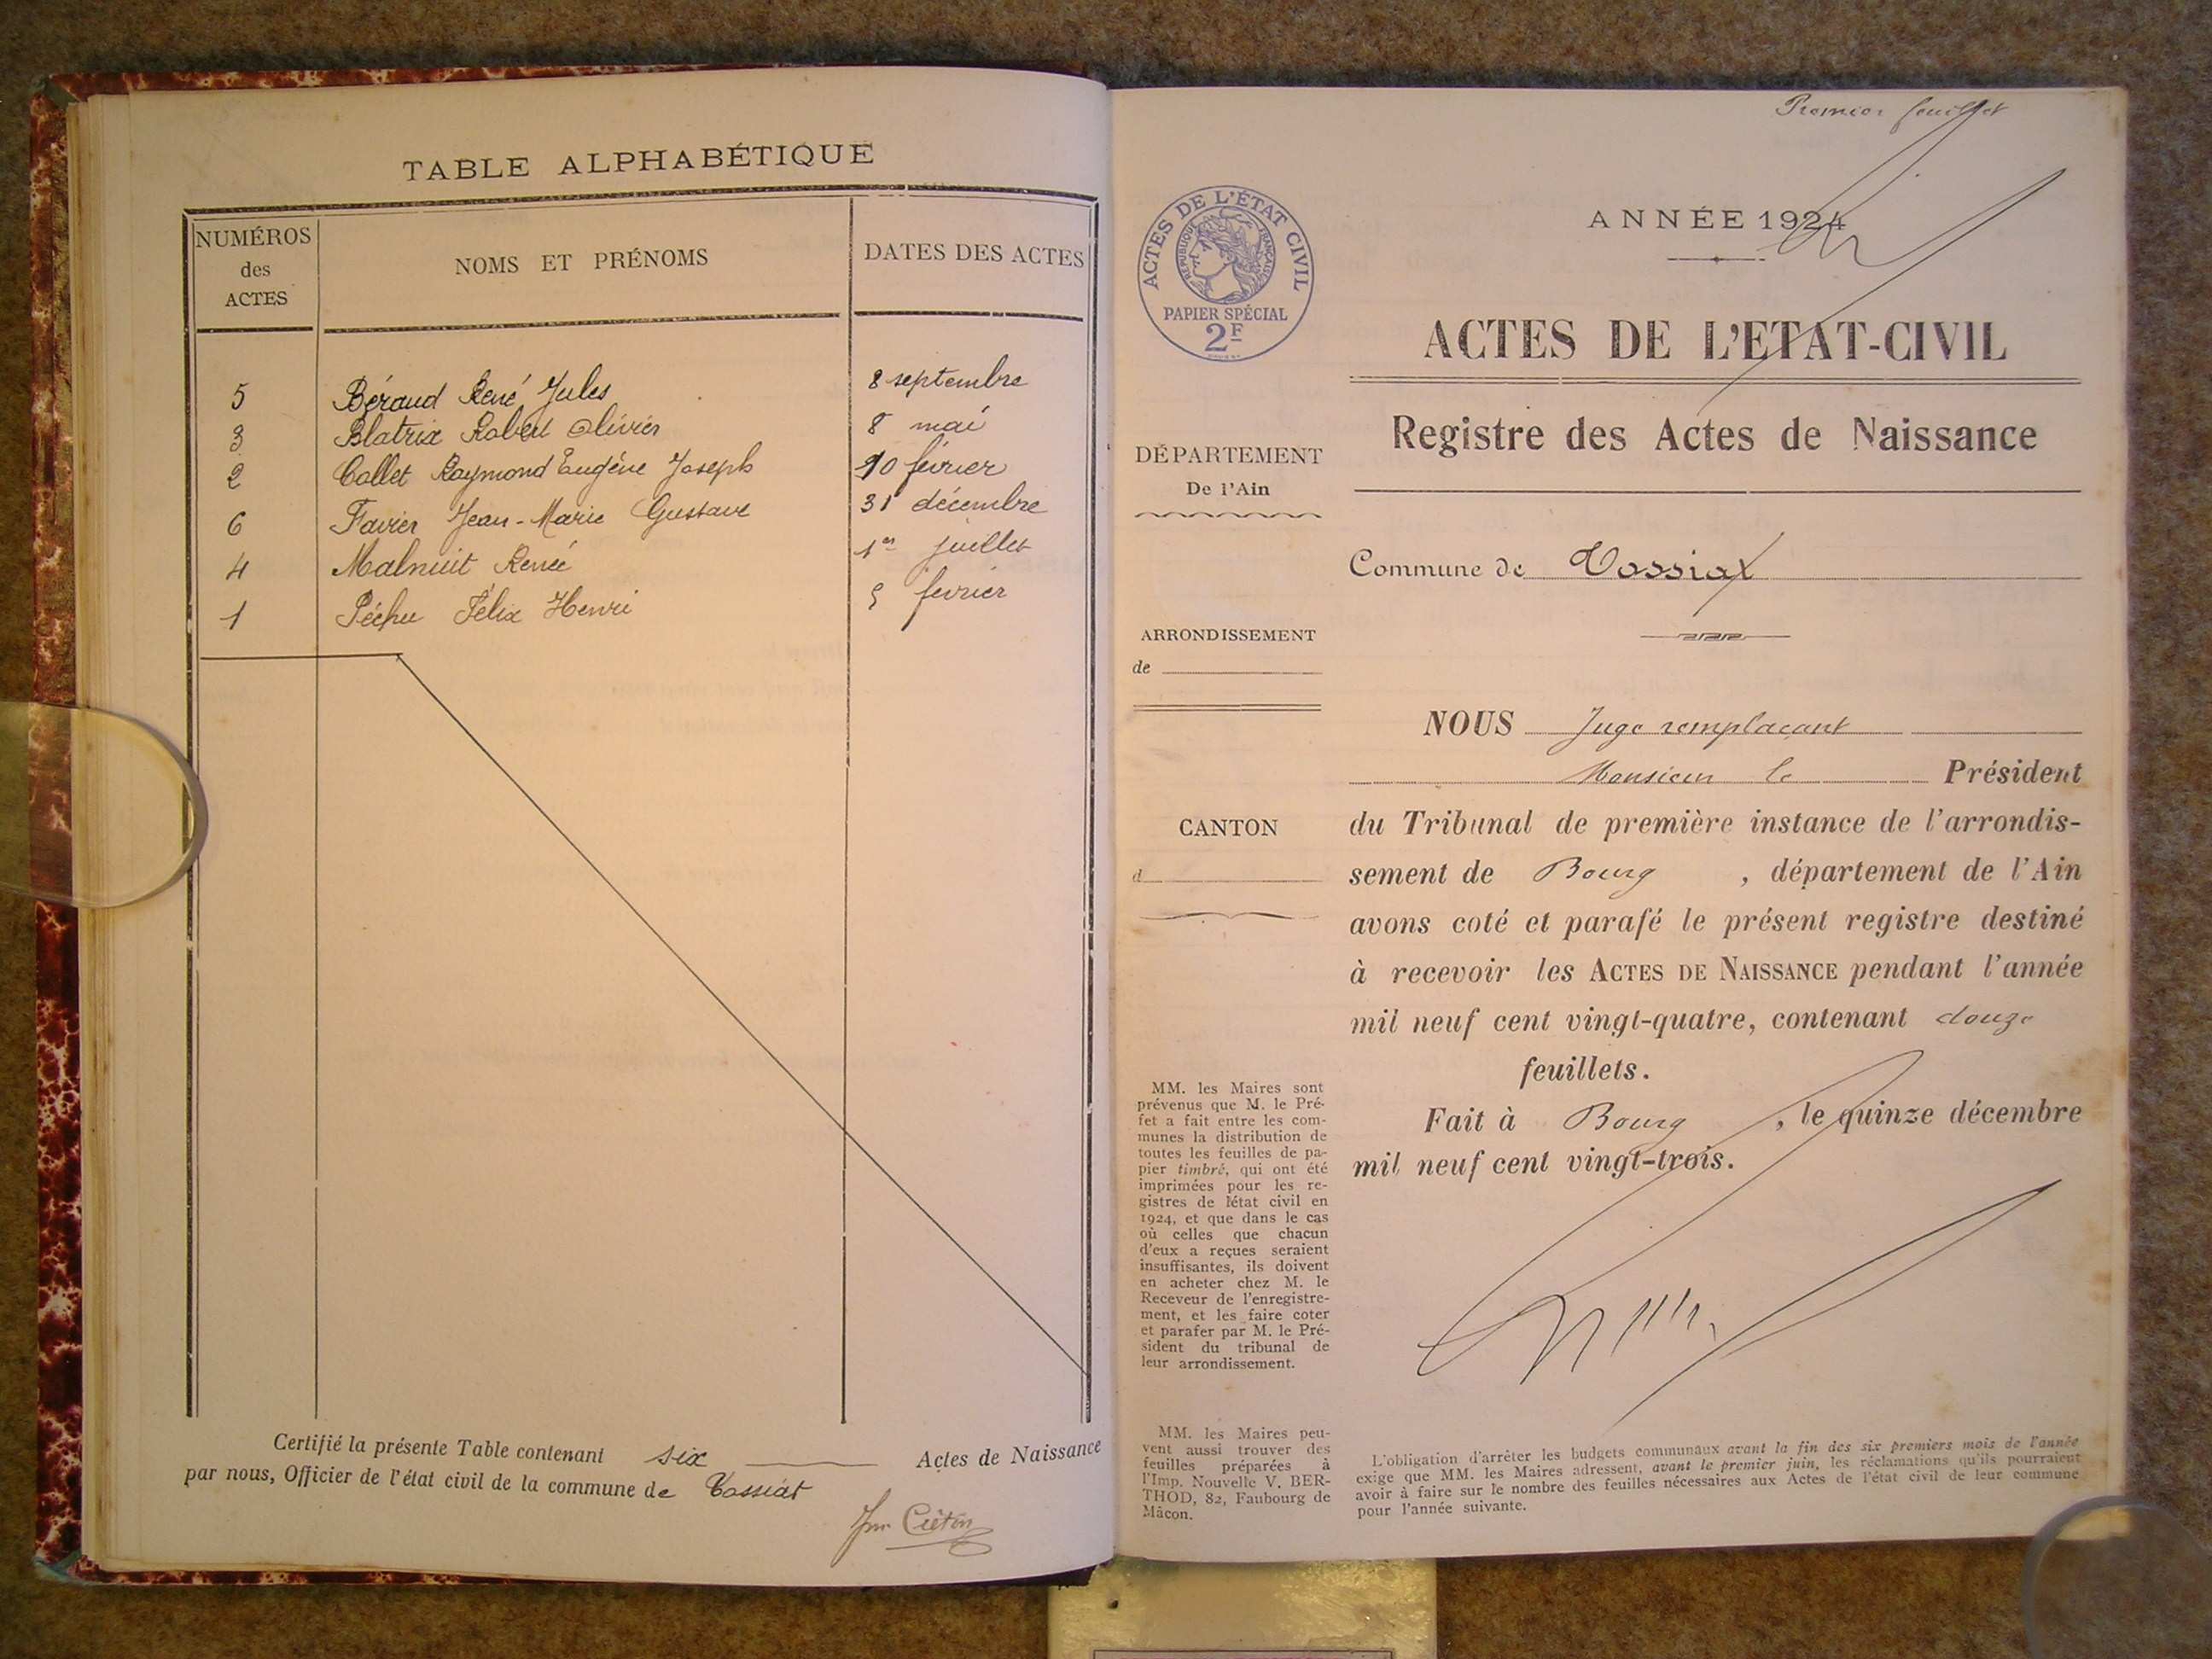 TABLE ALPHABÉTIQUE
NUMÉROS
des
ACTES
NOMS ET PRÉNOMS
DATES DES ACTES
5 Béraud René Jules 8 septembre
3 Blatrix Robert Olivier 8 mai
2 Collet Raymond Eugéne Joseph 10 février
6 Favier Jean-Marie Gustave 31 décembre
4 Malnuit Renée 1er juillet
1 Péchu Félix Henri 5 fevrier
Certifié la présente Table contenant six Actes de Naissance
par nous, Officier de l'état civil de la commune de Cossiat
Premier feuillet
ACTES DE L'ÉTAT CIVIL
RÉPUBLIQUE FRANÇAISE
PAPIER SPÉCIAL
2F
ANNÉE 1924
ACTES DE L'ETAT-CIVIL
Registre des Actes de Naissance
DÉPARTEMENT
De l'Ain
Commune de
ARRONDISSEMENT
de
CANTON
d
NOUS Juge remplaçant
Monsieur le Président
du Tribunal de première instance de l'arrondis-
sement de Bourg , département de l'Ain
avons coté et parafé le présent registre destiné
à recevoir les ACTES DE NAISSANCE pendant l'année
mil neuf cent vingt-quatre, contenant douze
feuillets.
Fait à Bourg , le quinze décembre
mil neuf cent vingt-trois.
MM. les Maires sont
prévenus que M. le Pré-
fet a fait entre les com-
munes la distribution de
toutes les feuilles de pa-
pier timbré, qui ont été
imprimées pour les re-
gistres de l'état civil en
1924, et que dans le cas
où celles que chacun
d'eux a reçues seraient
insuffisantes, ils doivent
en acheter chez M. le
Receveur de l'enregistre-
ment, et les faire coter
et parafer par M. le Pré-
sident du tribunal de
leur arrondissement.
MM. les Maires peu-
vent aussi trouver des
feuilles préparées à
l'Imp. Nouvelle V. BER-
THOD, 82, Faubourg de
Mâcon.
L'obligation d'arrêter les budgets communaux avant la fin des six premiers mois de l'année
exige que MM. les Maires adressent, avant le premier juin, les réclamations qu'ils pourraient
avoir à faire sur le nombre des feuilles nécessaires aux Actes de l'état civil de leur commune
pour l'année suivante.